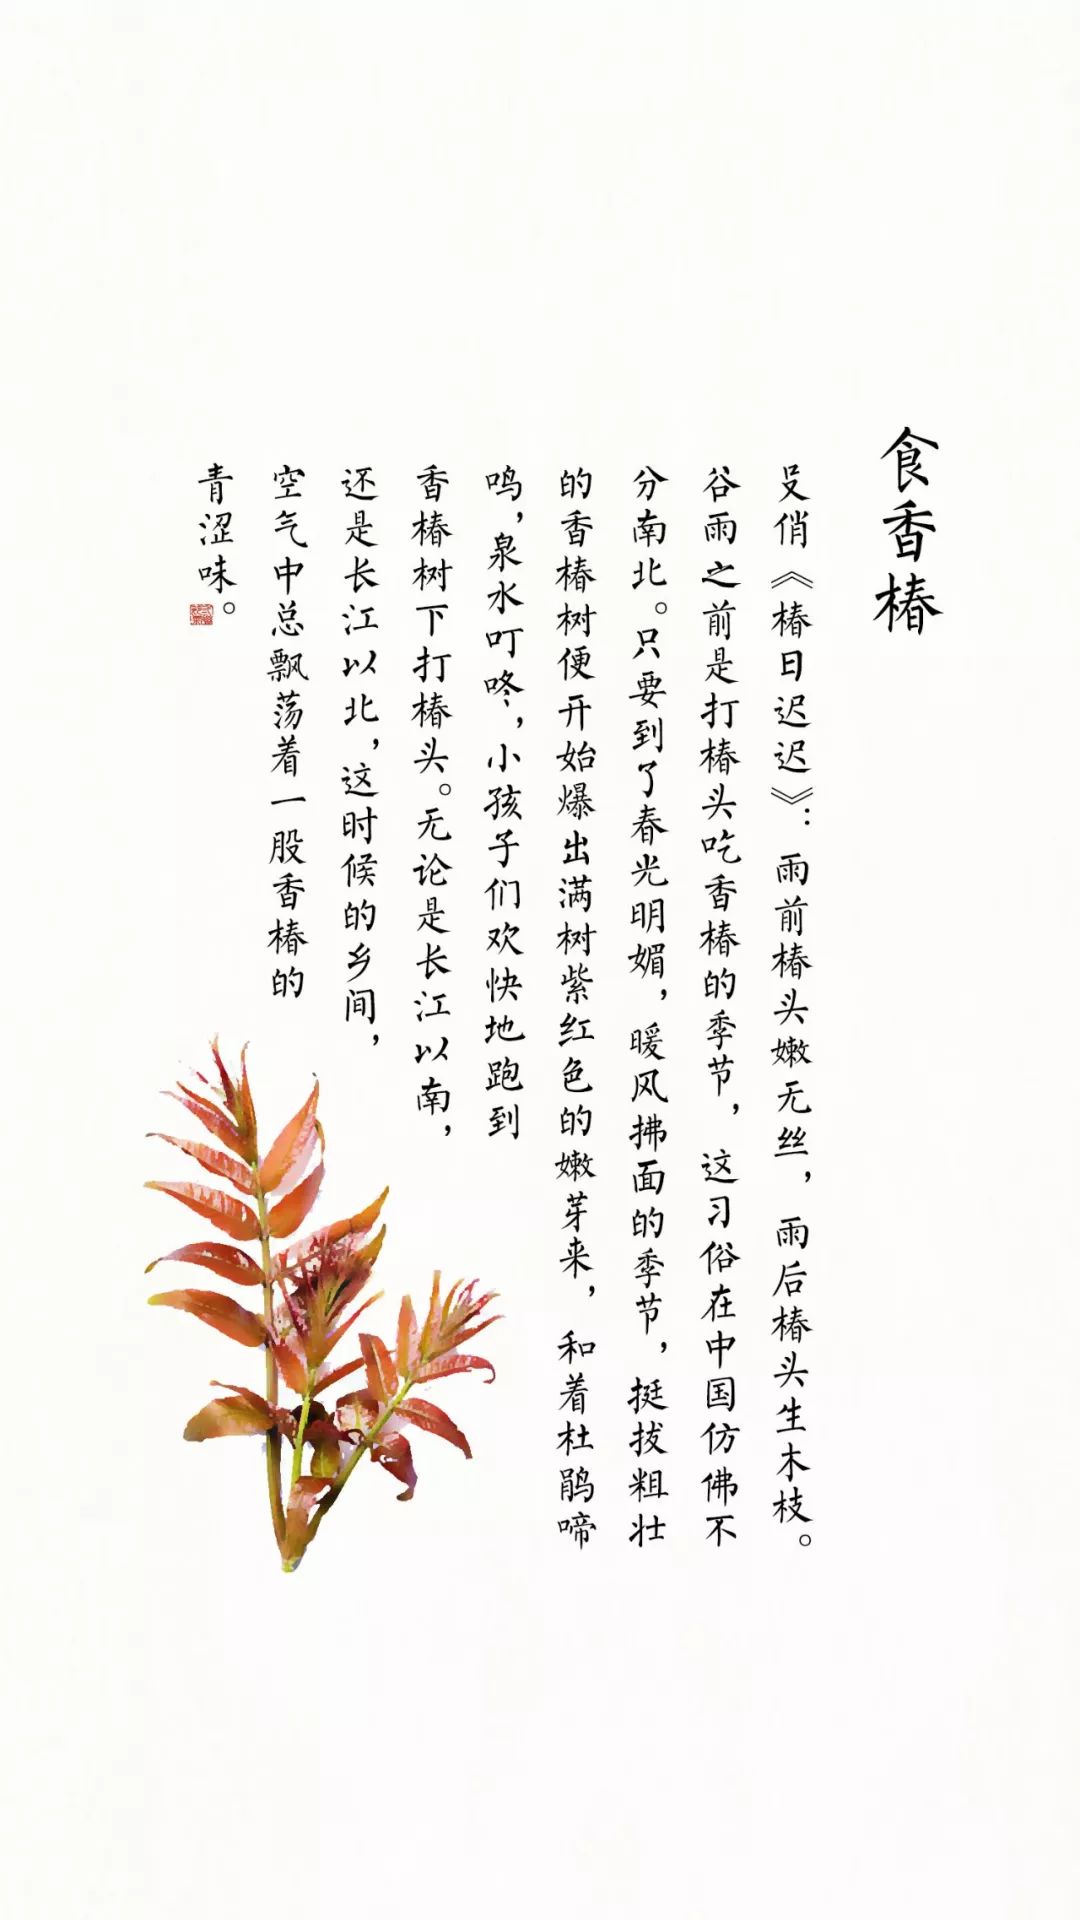 食香椿
殳俏《椿日迟迟》：雨前椿头嫩无丝，雨后椿头生木枝。
谷雨之前是打椿头吃香椿的季节，这习俗在中国仿佛不
分南北。只要到了春光明媚，暖风拂面的季节，挺拔粗壮
的香椿树便开始爆出满树紫红色的嫩芽来，和着杜鹃啼
鸣，泉水叮咚，小孩子们欢快地跑到
香椿树下打椿头。无论是长江以南，
还是长江以北，这时候的乡间，
空气中总飘荡着一股香椿的
青涩味。